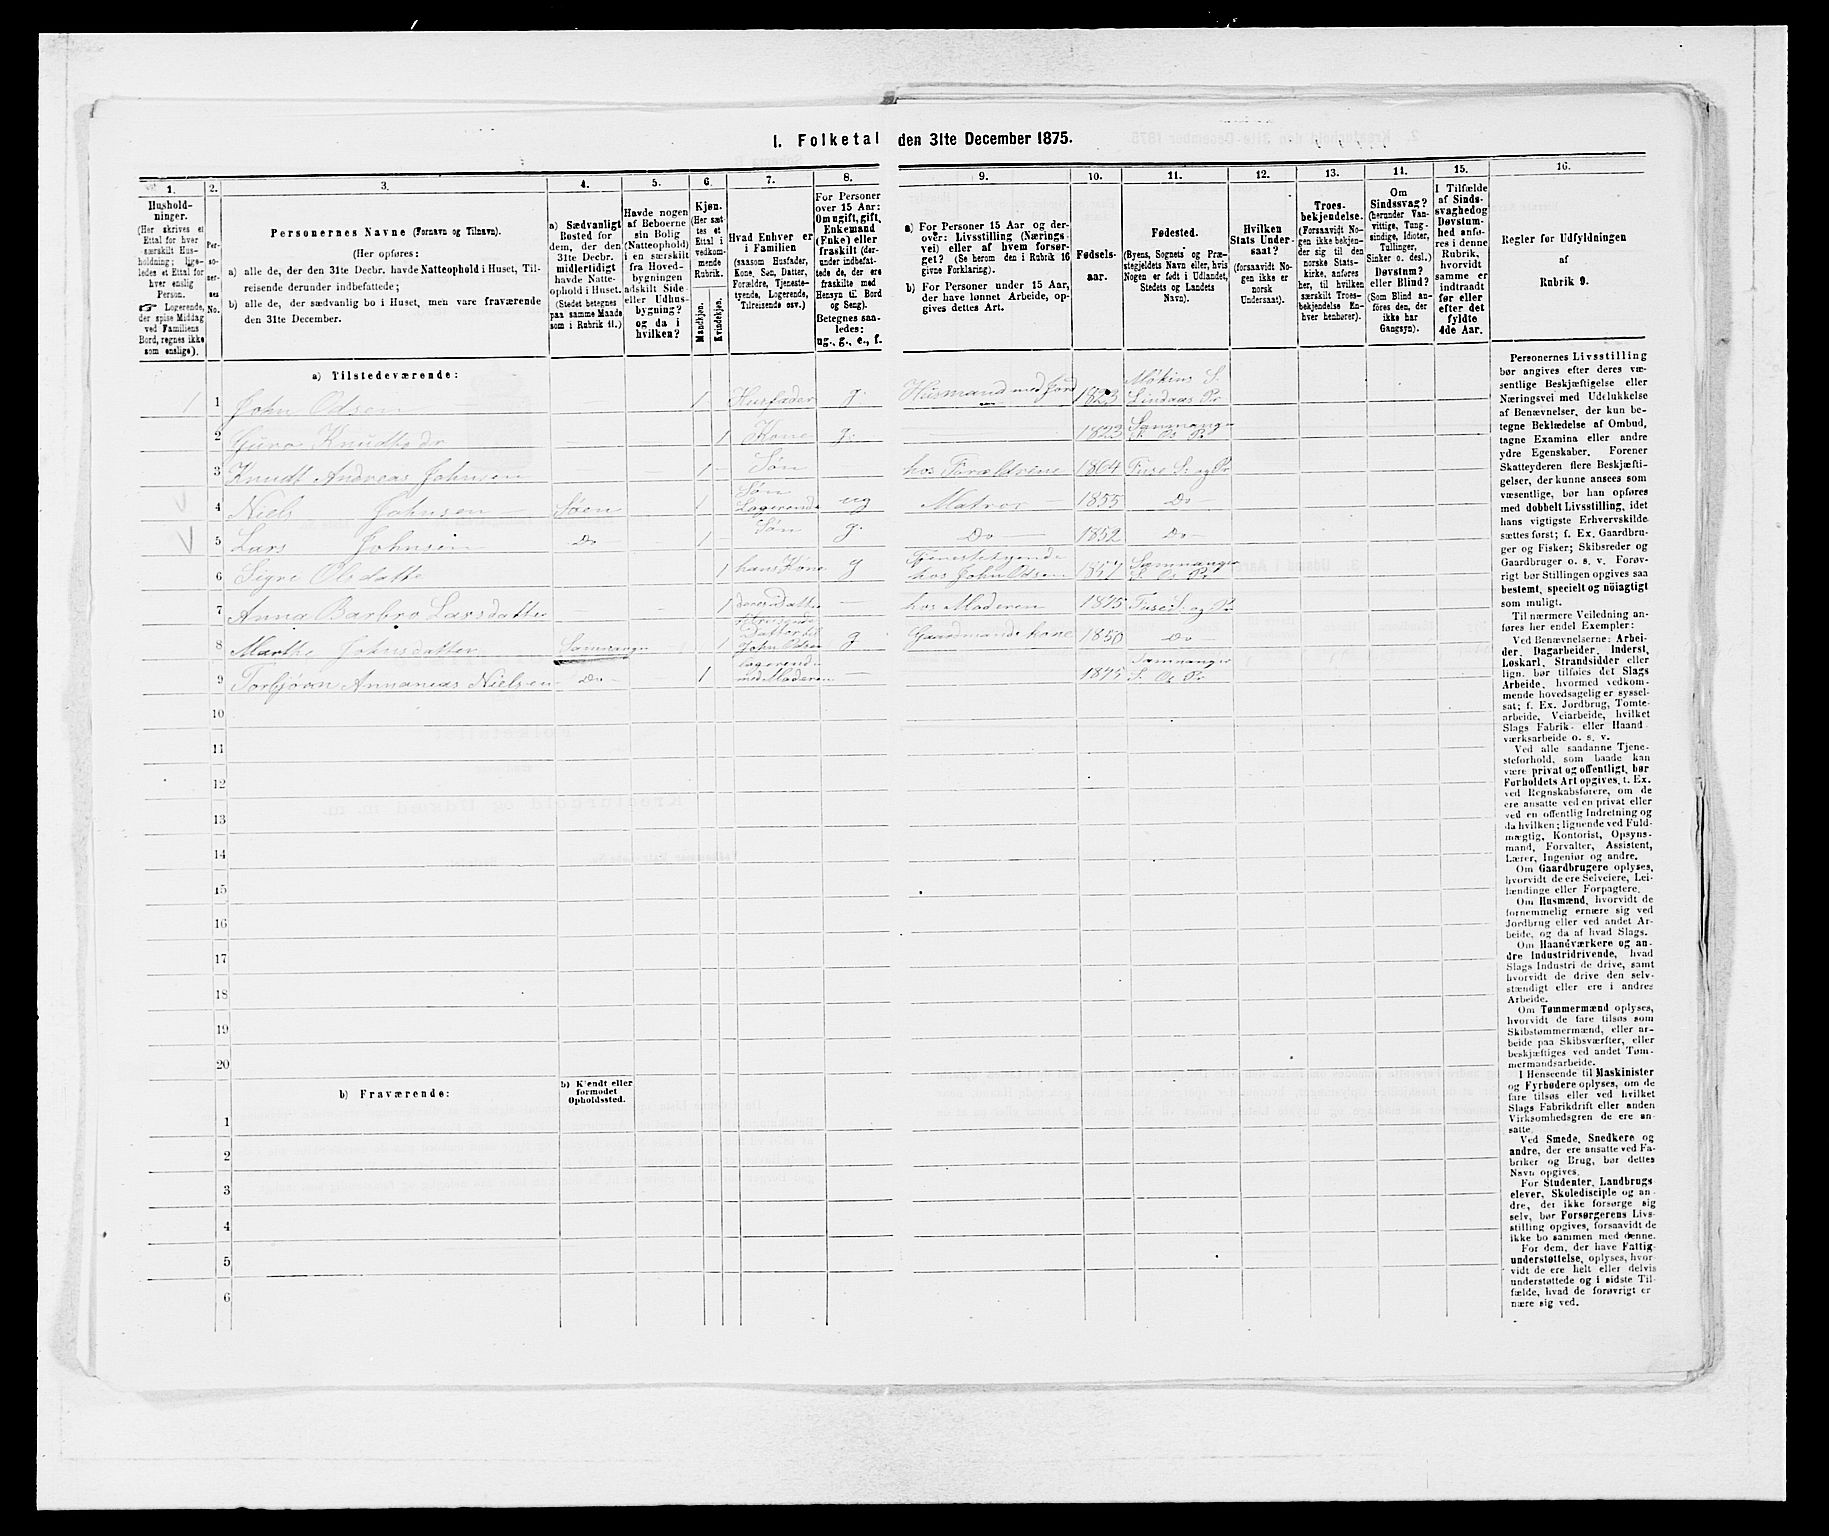 I. Folketal den 31te December 1875.
1.
2.
3.
4.
5.
6.
7.
8.
9.
10.
11.
12.
13.
14.
15.
16.
Hushold-
ninger.
(Her skrives et
Ettal for hver
særskilt Hus-
holdning; lige-
ledes et Ettal for
hver enslig
Person.
☞ Logerende,
der spise Middag
ved Familiens
Bord, regnes ikke
som enslige).
Per-
so-
ner-
nes
No.
Personernes Navne (Fornavn og Tilnavn).
(Her opføres:
a) alle de, der den 31te Decbr. havde Natteophold i Huset, Til-
reisende derunder indbefattede;
b) alle de, der sædvanlig bo i Huset, men vare fraværende
den 31te December.
a) Sædvanligt
Bosted for
dem, der den
31te Decbr.
midlertidigt
havde Natte-
ophold i Huset.
(Stedet betegnes
paa samme Maade
som i Rubrik 11.)
Havde nogen
af Beboerne
sin Bolig
(Natteophold)
i en særskilt
fra Hoved-
bygningen
adskilt Side-
eller Udhus-
bygning?
og da i
hvilken?
Kjøn.
(Her sæt-
tes et
Ettal i
vedkom-
mende
Rubrik.
Mandkjøn.
Kvindekjøn.
Hvad Enhver er
i Familien
(saasom Husfader,
Kone, Søn, Datter,
Forældre, Tjeneste-
tyende, Logerende,
Tilreisende osv.)
For Personer
over 15 Aar:
Om ugift, gift,
Enkemand
(Enke) eller
fraskilt (der-
under indbefat-
tede de, der ere
fraskilte med
Hensyn til Bord
og Seng).
Betegnes saa-
ledes:
ug., g., e., f.
a) For Personer 15 Aar og der-
over: Livsstilling (Nærings-
vei) eller af hvem forsør-
get? (Se herom den i Rubrik 16
givne Forklaring).
b) For Personer under 15 Aar,
der have lønnet Arbeide, op-
gives dettes Art.
Fødsels-
aar.
Fødested.
(Byens, Sognets og Præ-
stegjeldets Navn eller, hvis
Nogen er født i Udlandet,
Stedets og Landets
Navn).
Hvilken
Stats Under-
saat?
(forsaavidt No-
gen ikke er
norsk
Undersaat).
Troes-
bekjendelse.
(Forsaavidt No-
gen ikke bekjen-
der sig til den
norske Stats-
kirke, anføres
her, til hvilken
særskilt Troes-
bekjendelse En-
hver henhører).
Om
Sindssvag?
(herunder Van-
vittige, Tung-
sindige, Idioter,
Tullinger,
Sinker o. desl.)
Døvstum?
eller Blind?
(Som Blind an-
føres den, der
ikke har
Gangsyn).
I Tilfælde
af Sinds-
svaghed og
Døvstum-
hed anfø-
res i denne
Rubrik,
hvorvidt
samme er
indtraadt
før eller
efter det
fyldte
4de Aar.
Regler for Udfyldningen
af
Rubrik 9.
a) Tilstedeværende:
1 1 John Odsen 1 Husfader g. Husmand med Jord 1823 Lindaas Pr
2 Guro Knudtsdr 1 Kone g. 1823 Samnanger S. Os Pr
3 Knudt Andreas Johnsen 1 Søn hos Forældrene 1864 Fuse S. og Pr
4 Niels Johnsen Søen 1 Søn Logerende ug Matros 1855 Do
5 Lars Johnsen Do 1 Søn g. Do 1852 Do
6 Sigri Olsdatter 1 hans Kone g Tjenestetyende hos John Odsen 1857 Samnanger S. Os Pr
7 Anna Barbro Larsdatter 1 deres Datter hos Moderen 1875 Fuse S. og Pr
8 Marthe Johnsdatter Samnanger 1 Datter til John Odsen g Gaardmands kone 1850 Do
9 Torbjørn Annanias Nielsen Do 1 Logerende med Moderen 1875 Samnanger S. Os Pr
10
11
12
13
14
15
16
17
18
19
20
b) Fraværende:
b) Kjendt eller
formodet
Opholdssted.
1
2
3
4
5
6
Personernes Livsstilling
bør angives efter deres væ-
sentlige Beskjæftigelse eller
Næringsvei med Udelukkelse
af Benævnelser, der kun be-
tegne Beklædelse af Ombud,
tagne Examina eller andre
ydre Egenskaber. Forener
Skatteyderen flere Beskjæfti-
gelser, der kunne ansees som
væsentlige, bør han opføres
med dobbelt Livsstilling, idet
hans vigtigste Erhvervskilde
sættes først; f. Ex. Gaardbru-
ger og Fisker; Skibsreder og
Gaardbruger o. s. v. Forøv-
rigt bør Stillingen opgives saa
bestemt, specielt og nøiagtigt
som muligt.
Til nærmere Veiledning an-
føres her endel Exempler:
Ved Benævnelserne: Arbei-
der, Dagarbeider, Inderst,
Løskarl, Strandsidder eller
lign. bør tilføies det Slags
Arbeide, hvormed vedkom-
mende hovedsagelig er syssel-
sat; f. Ex. Jordbrug, Tomte-
arbeide, Veiarbeide, hvilket
Slags Fabrik- eller Haand-
værksarbeide o. s. v.
Ved alle saadanne Tjene-
steforhold, som baade kan
være privat og offentligt, bør
Forholdets Art opgives, t. Ex.
ved Regnskabsførere, om de
ere ansatte ved en privat eller
ved en offentlig Indretning og
da hvilken; lignende ved Fuld-
mægtig, Kontorist, Opsyns-
mand, Forvalter, Assistent,
Lærer, Ingeniør og andre.
Om Gaardbrugere oplyses,
hvorvidt de ere Selveiere, Lei-
lændinge eller Forpagtere.
Om Husmænd, hvorvidt de
fornemmelig ernære sig ved
Jordbrug eller ved andet Ar-
beide, og da af hvad Slags.
Om Haandværkere og an-
dre Industridrivende, hvad
Slags Industri de drive, samt
hvorvidt de drive den selv-
stændigt eller ere i andres
Arbeide.
Om Tømmermænd oplyses,
hvorvidt de fare tilsøs som
Skibstømmermænd, eller ar-
beide paa Skibsværfter, eller
beskjæftiges ved andet Tøm-
mermandsarbeide.
I Henseende til Maskinister
og Fyrbødere oplyses, om de
fare tilsøs eller ved hvilket
Slags Fabrikdrift eller anden
Virksomhedsgren de ere an-
satte.
Ved Smede, Snedkere og
andre, der ere ansatte ved Fa-
briker og Brug, bør dettes
Navn opgives.
For Studenter, Landbrugs-
elever, Skoledisciple og an-
dre, der ikke forsørge sig
selv, bør Forsørgerens Livs-
stilling opgives, forsaavidt de
ikke bo sammen med denne.
For dem, der have Fattig-
understøttelse, oplyses, hvor-
vidt de ere helt eller delvis
understøttede og i sidste Til-
fælde, hvad de forøvrigt er-
nære sig ved.